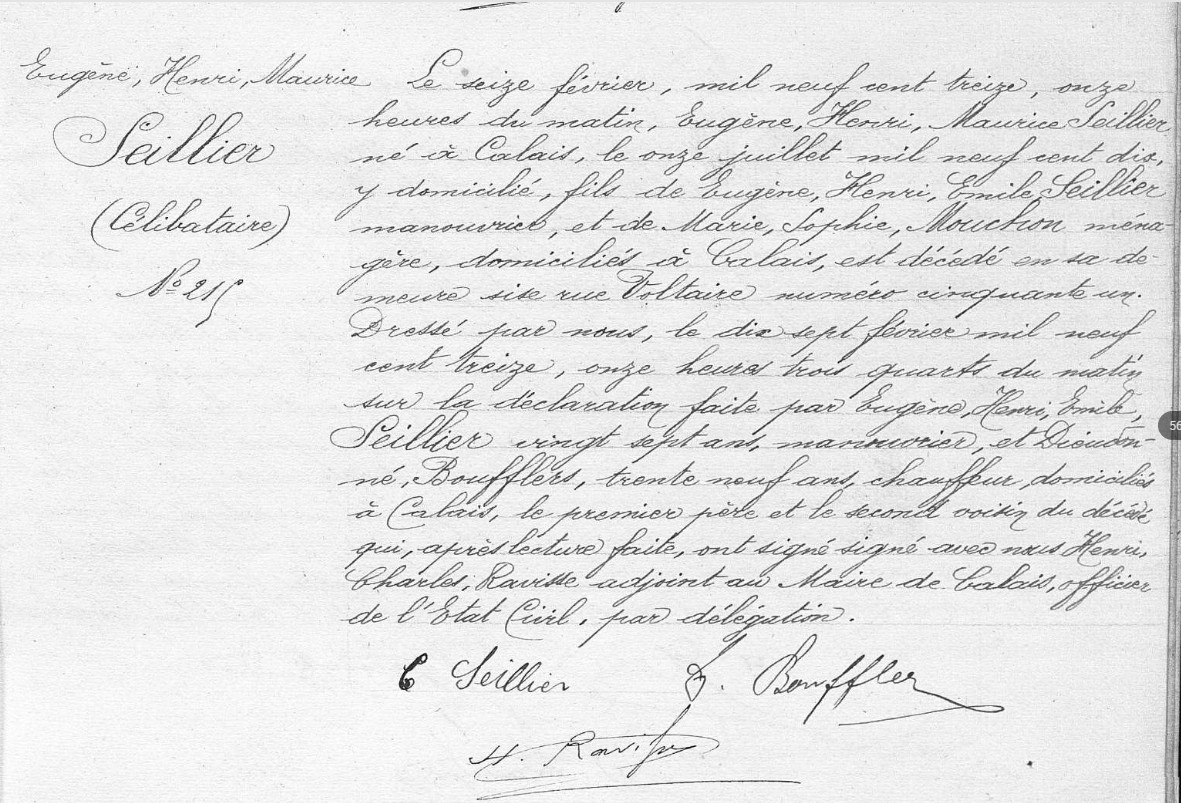 Eugène, Henri, Maurice
Seillier
(Célibataire)
No 215
Le seize février, mil neuf cent treize, onze
heures du matin, Eugène, Henri, Maurice Seillier
né à Calais, le onze juillet mil neuf cent dix,
y domicilié, fils de Eugène, Henri, Emile Seillier
manouvrier, et de Marie, Sophie, Mouchon ména-
gère, domiciliés à Calais, est décédé en sa de-
meure sise rue Voltaire numéro cinquante un.
Dressé par nous, le dix sept février mil neuf
cent treize, onze heures trois quarts du matin
sur la déclaration faite par Eugène, Henri, Emile,
Seillier vingt sept ans, manouvrier, et Dieudon-
né, Boufflers, trente neuf ans, chauffeur, domiciliés
à Calais, le premier père et le second voisin du décédé
qui, après lecture faite, ont signé signé avec nous Henri,
Charles, Ravisse adjoint au Maire de Calais, officier
de l'Etat Civil, par délégation.
E Seillier D. Bouffler
H. Ravisse
56